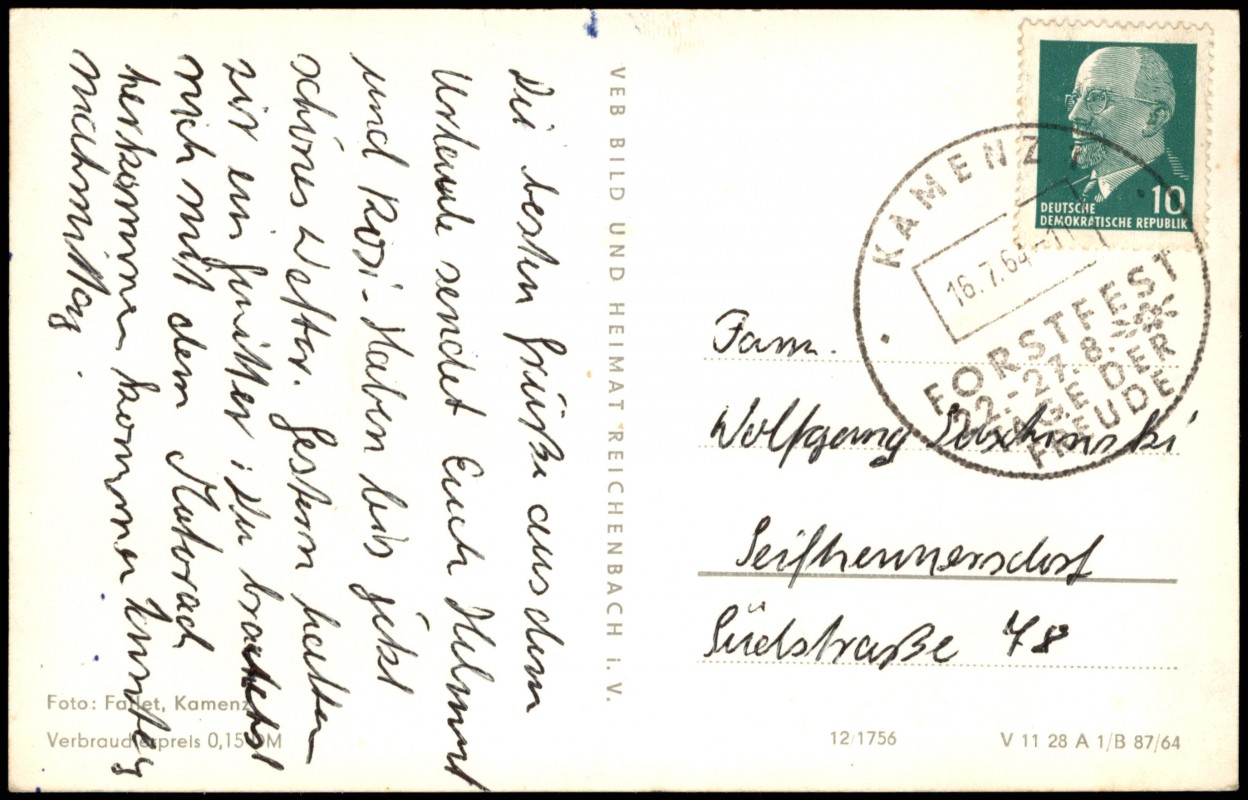 Die besten Grüße aus dem
Urlaub sendet Euch Helmut
und Rosi. Haben bis jetzt
schönes Wetter. Gestern hatten
wir ein Gewitter; Du brauchst
mich mit dem Motorad
herkommen kommen
nachmittag.
VEB BILD UND HEIMAT REICHENBACH i. V.
Foto: Farlet, Kamenz
Verbraucherpreis 0,15 DM
10
DEUTSCHE
DEMOKRATISCHE REPUBLIK
KAMENZ 1
16.7.64-11
FORSTFEST
22.-27.8.
TAGE DER
FREUDE
Fam.
Wolfgang
Seifhennersdorf
Südstraße 78
12/1756
V 11 28 A 1/B 87/64